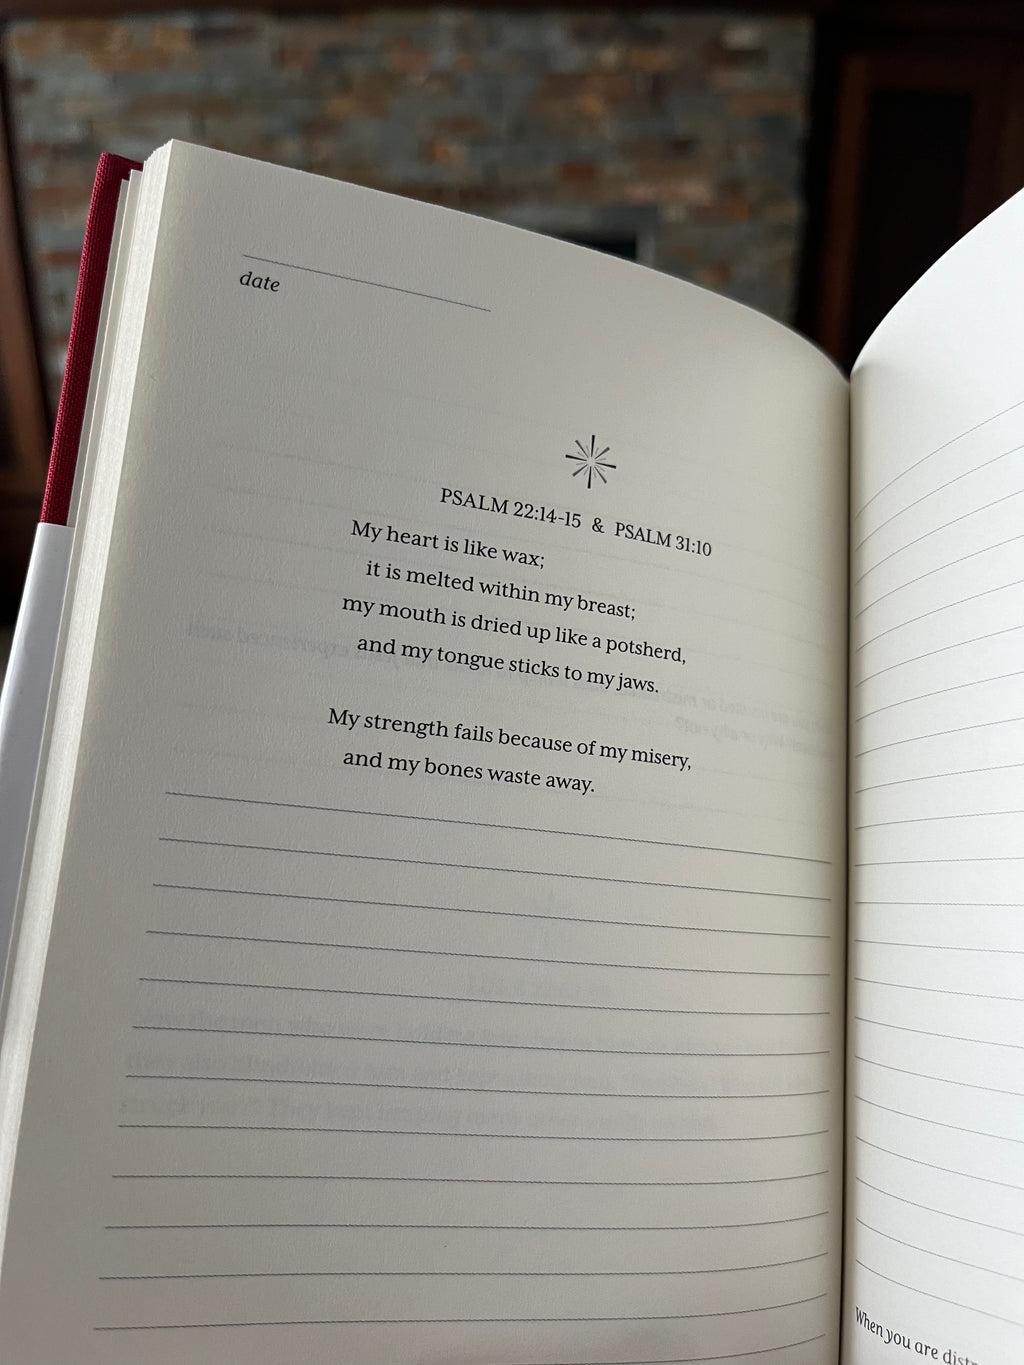 date
PSALM 22:14-15 & PSALM 31:10
My heart is like wax;
it is melted within my breast;
my mouth is dried up like a potsherd,
and my tongue sticks to my jaws.
My strength fails because of my misery,
and my bones waste away.
When you are